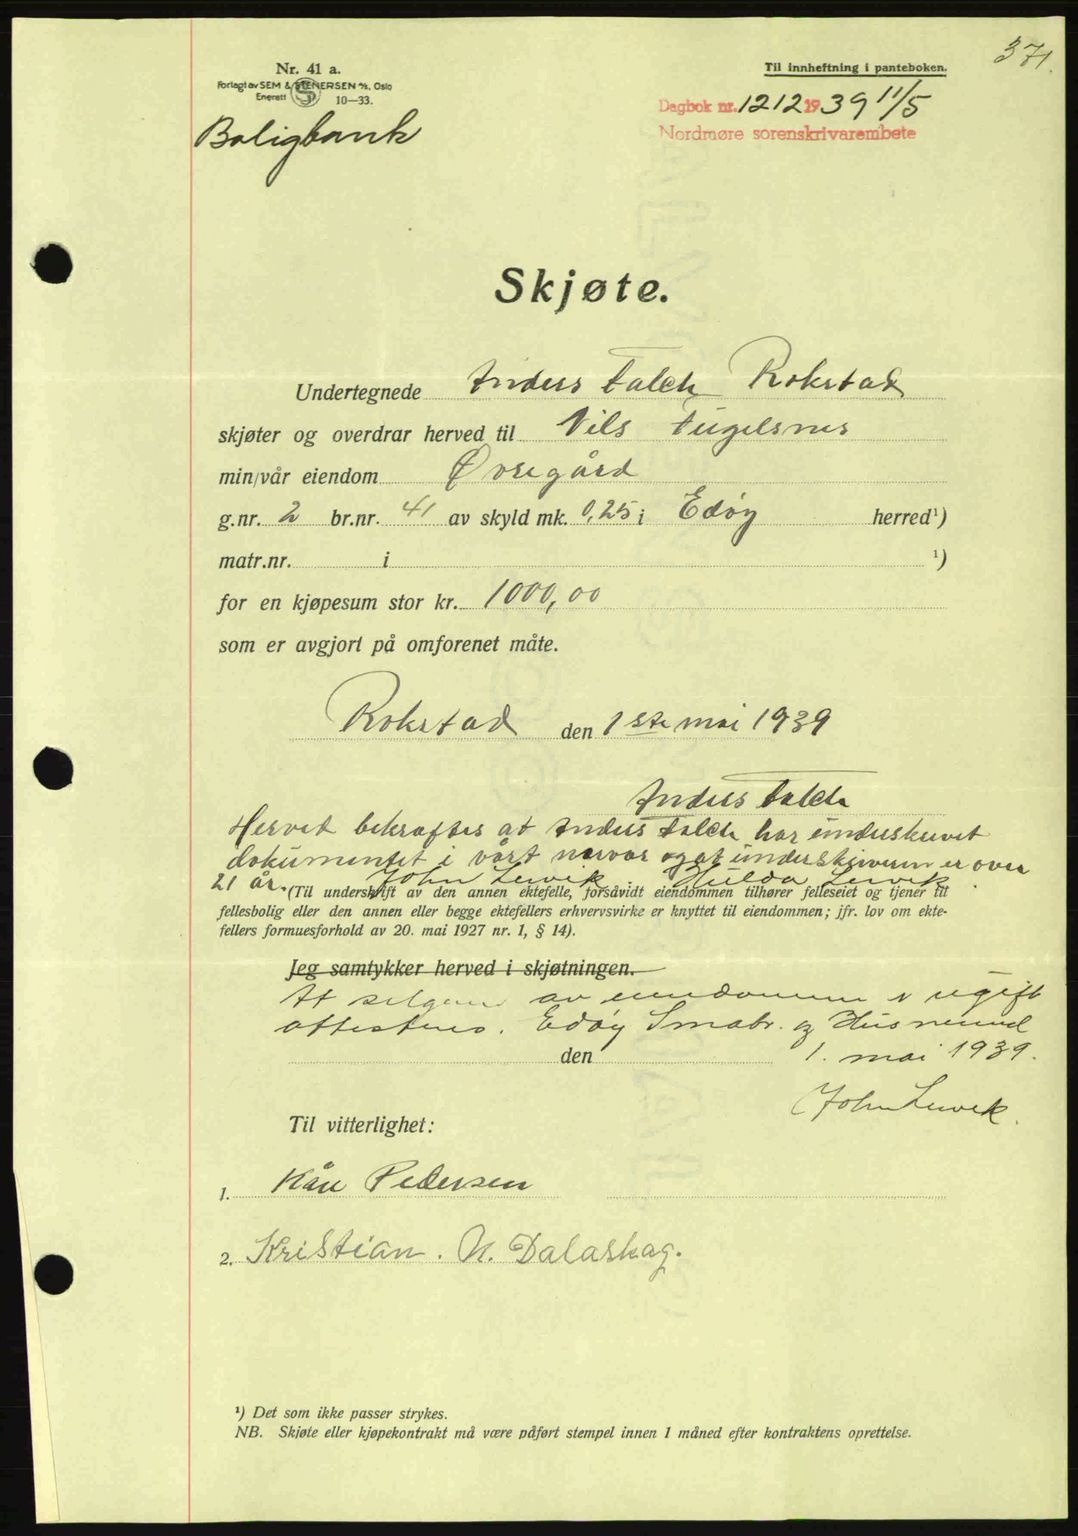 371.
Nr. 41 a.
Forlagt av SEM & STENERSEN A/S, Oslo
Enerett S 10—33.
Til innheftning i panteboken.
Dagbok nr. 1212 1939 11/5
Nordmøre sorenskrivarembete
Boligbank
Skjøte.
Undertegnede Anders Falch Rokstad
skjøter og overdrar herved til Nils Fugelsnes
min/vår eiendom Øvregård
g.nr. 2 br.nr. 41 av skyld mk. 0,25 i Edøy herred¹)
matr.nr. i ¹)
for en kjøpesum stor kr. 1000,00
som er avgjort på omforenet måte.
Rokstad den 1ste mai 1939
Anders Falch
Herved bekreftes at Anders Falch har underskrevet
dokumentet i vårt nærvær og at underskriveren er over
21 år. John Lervik. Hulda Lervik.
(Til underskrift av den annen ektefelle, forsåvidt eiendommen tilhører felleseiet og tjener til
fellesbolig eller den annen eller begge ektefellers erhvervsvirke er knyttet til eiendommen; jfr. lov om ekte-
fellers formuesforhold av 20. mai 1927 nr. 1, § 14).
Jeg samtykker herved i skjøtningen.
At selgeren av eiendommen er ugift
attesteres. Edøy Småbr. og Husnemnd
den 1. mai 1939.
John Lervik.
Til vitterlighet:
1. Kåre Pedersen
2. Kristian. N. Dalaskag.
¹) Det som ikke passer strykes.
NB. Skjøte eller kjøpekontrakt må være påført stempel innen 1 måned efter kontraktens oprettelse.